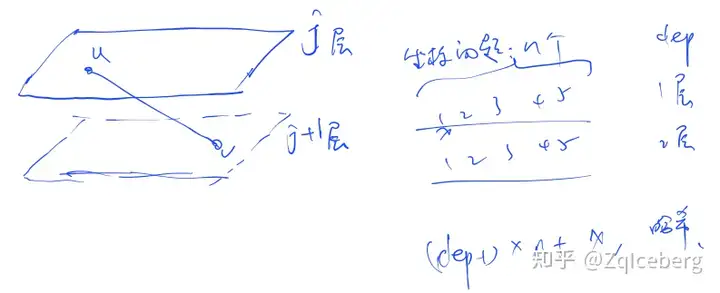 j层
u
j+1层
v
坐标问题：n个
dep
1 2 3 4 5
1层
x
1 2 3 4 5
2层
(dep-1) × n + x
知乎 @ZqIceberg